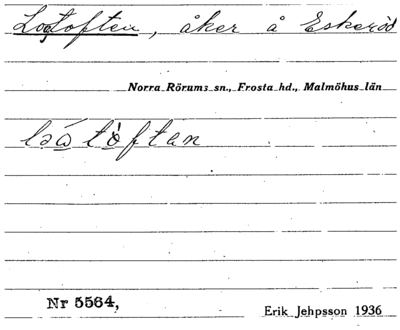 Lostoften, åker å Eskeröd
Norra Rörums sn., Frosta hd., Malmöhus län
Nr 5564,
Erik Jehpsson 1936